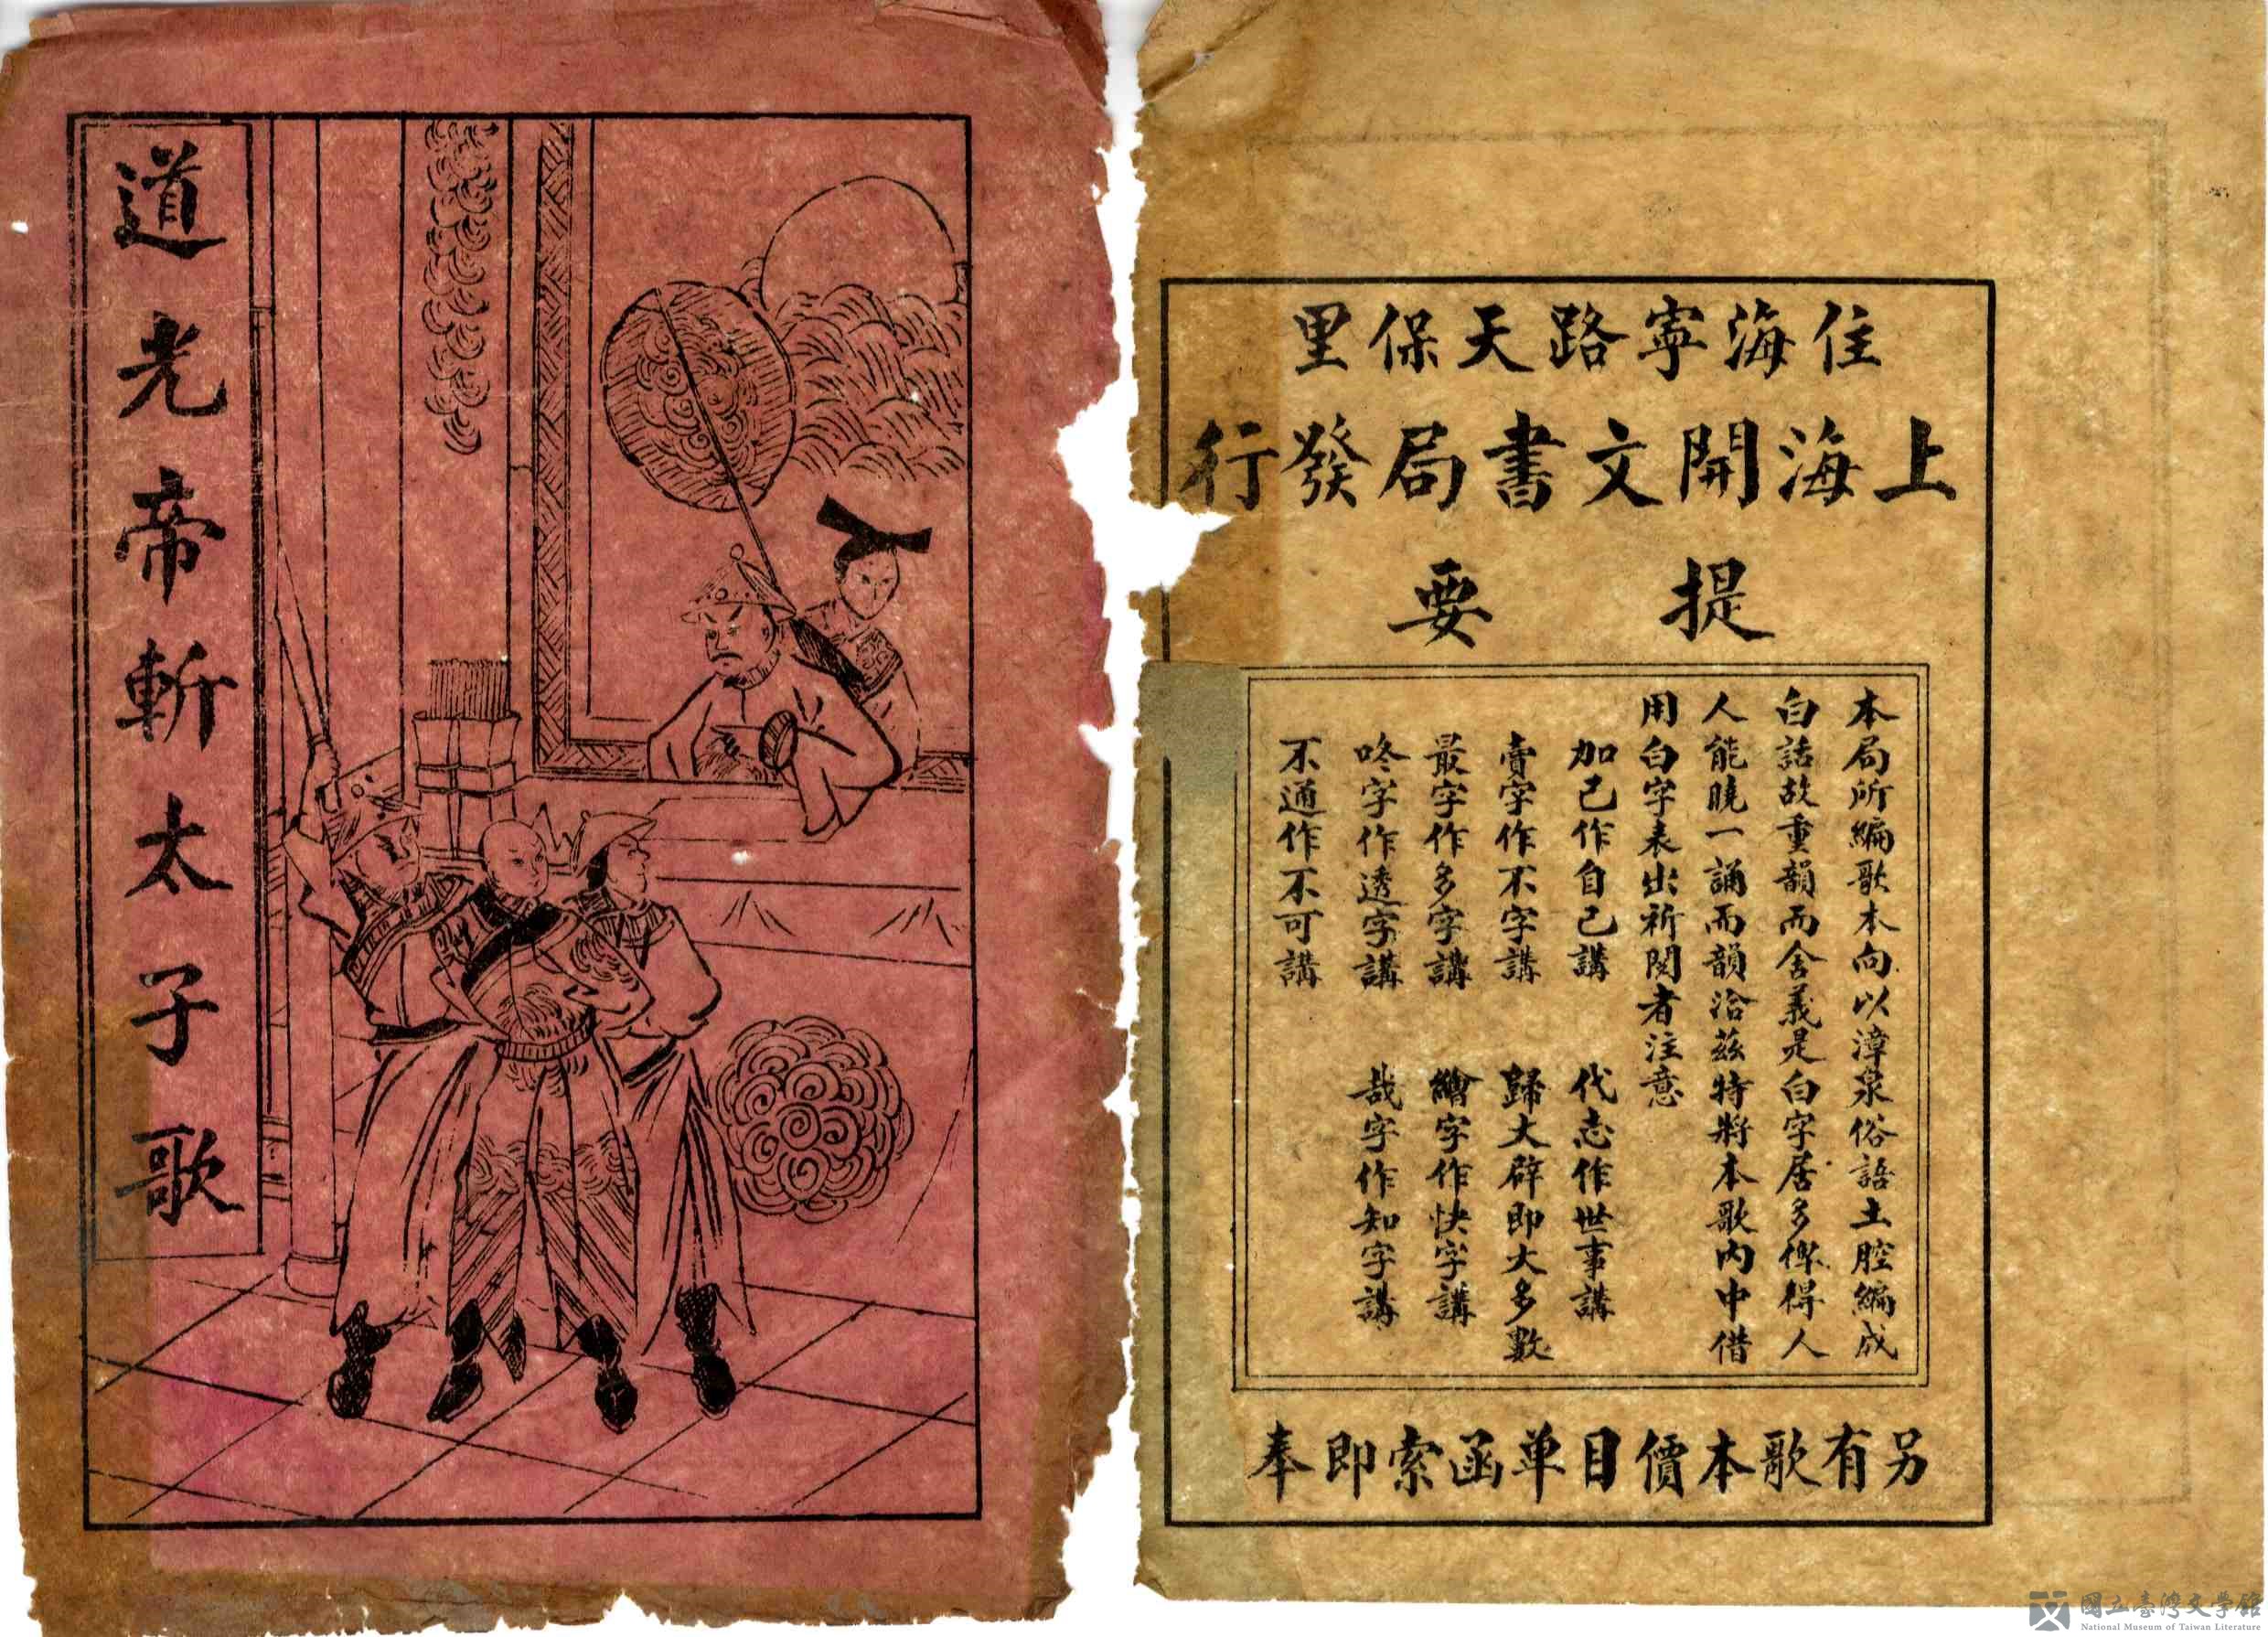 道光帝斬太子歌
住海寧路天保里
上海開文書局發行
提要
本局所編歌本向以漳泉俗語土腔編成
白話故重韻而舍義是白字居多俾得人
人能曉一誦而韻洽茲特將本歌內中借
用白字表出祈閱者注意
加己作自己講 代志作世事講
賣字作不字講 歸大辟即大多數
最字作多字講 繪字作快字講
咚字作透字講 哉字作知字講
不通作不可講
另有歌本價目單函索即奉
國立臺灣文學館
National Museum of Taiwan Literature